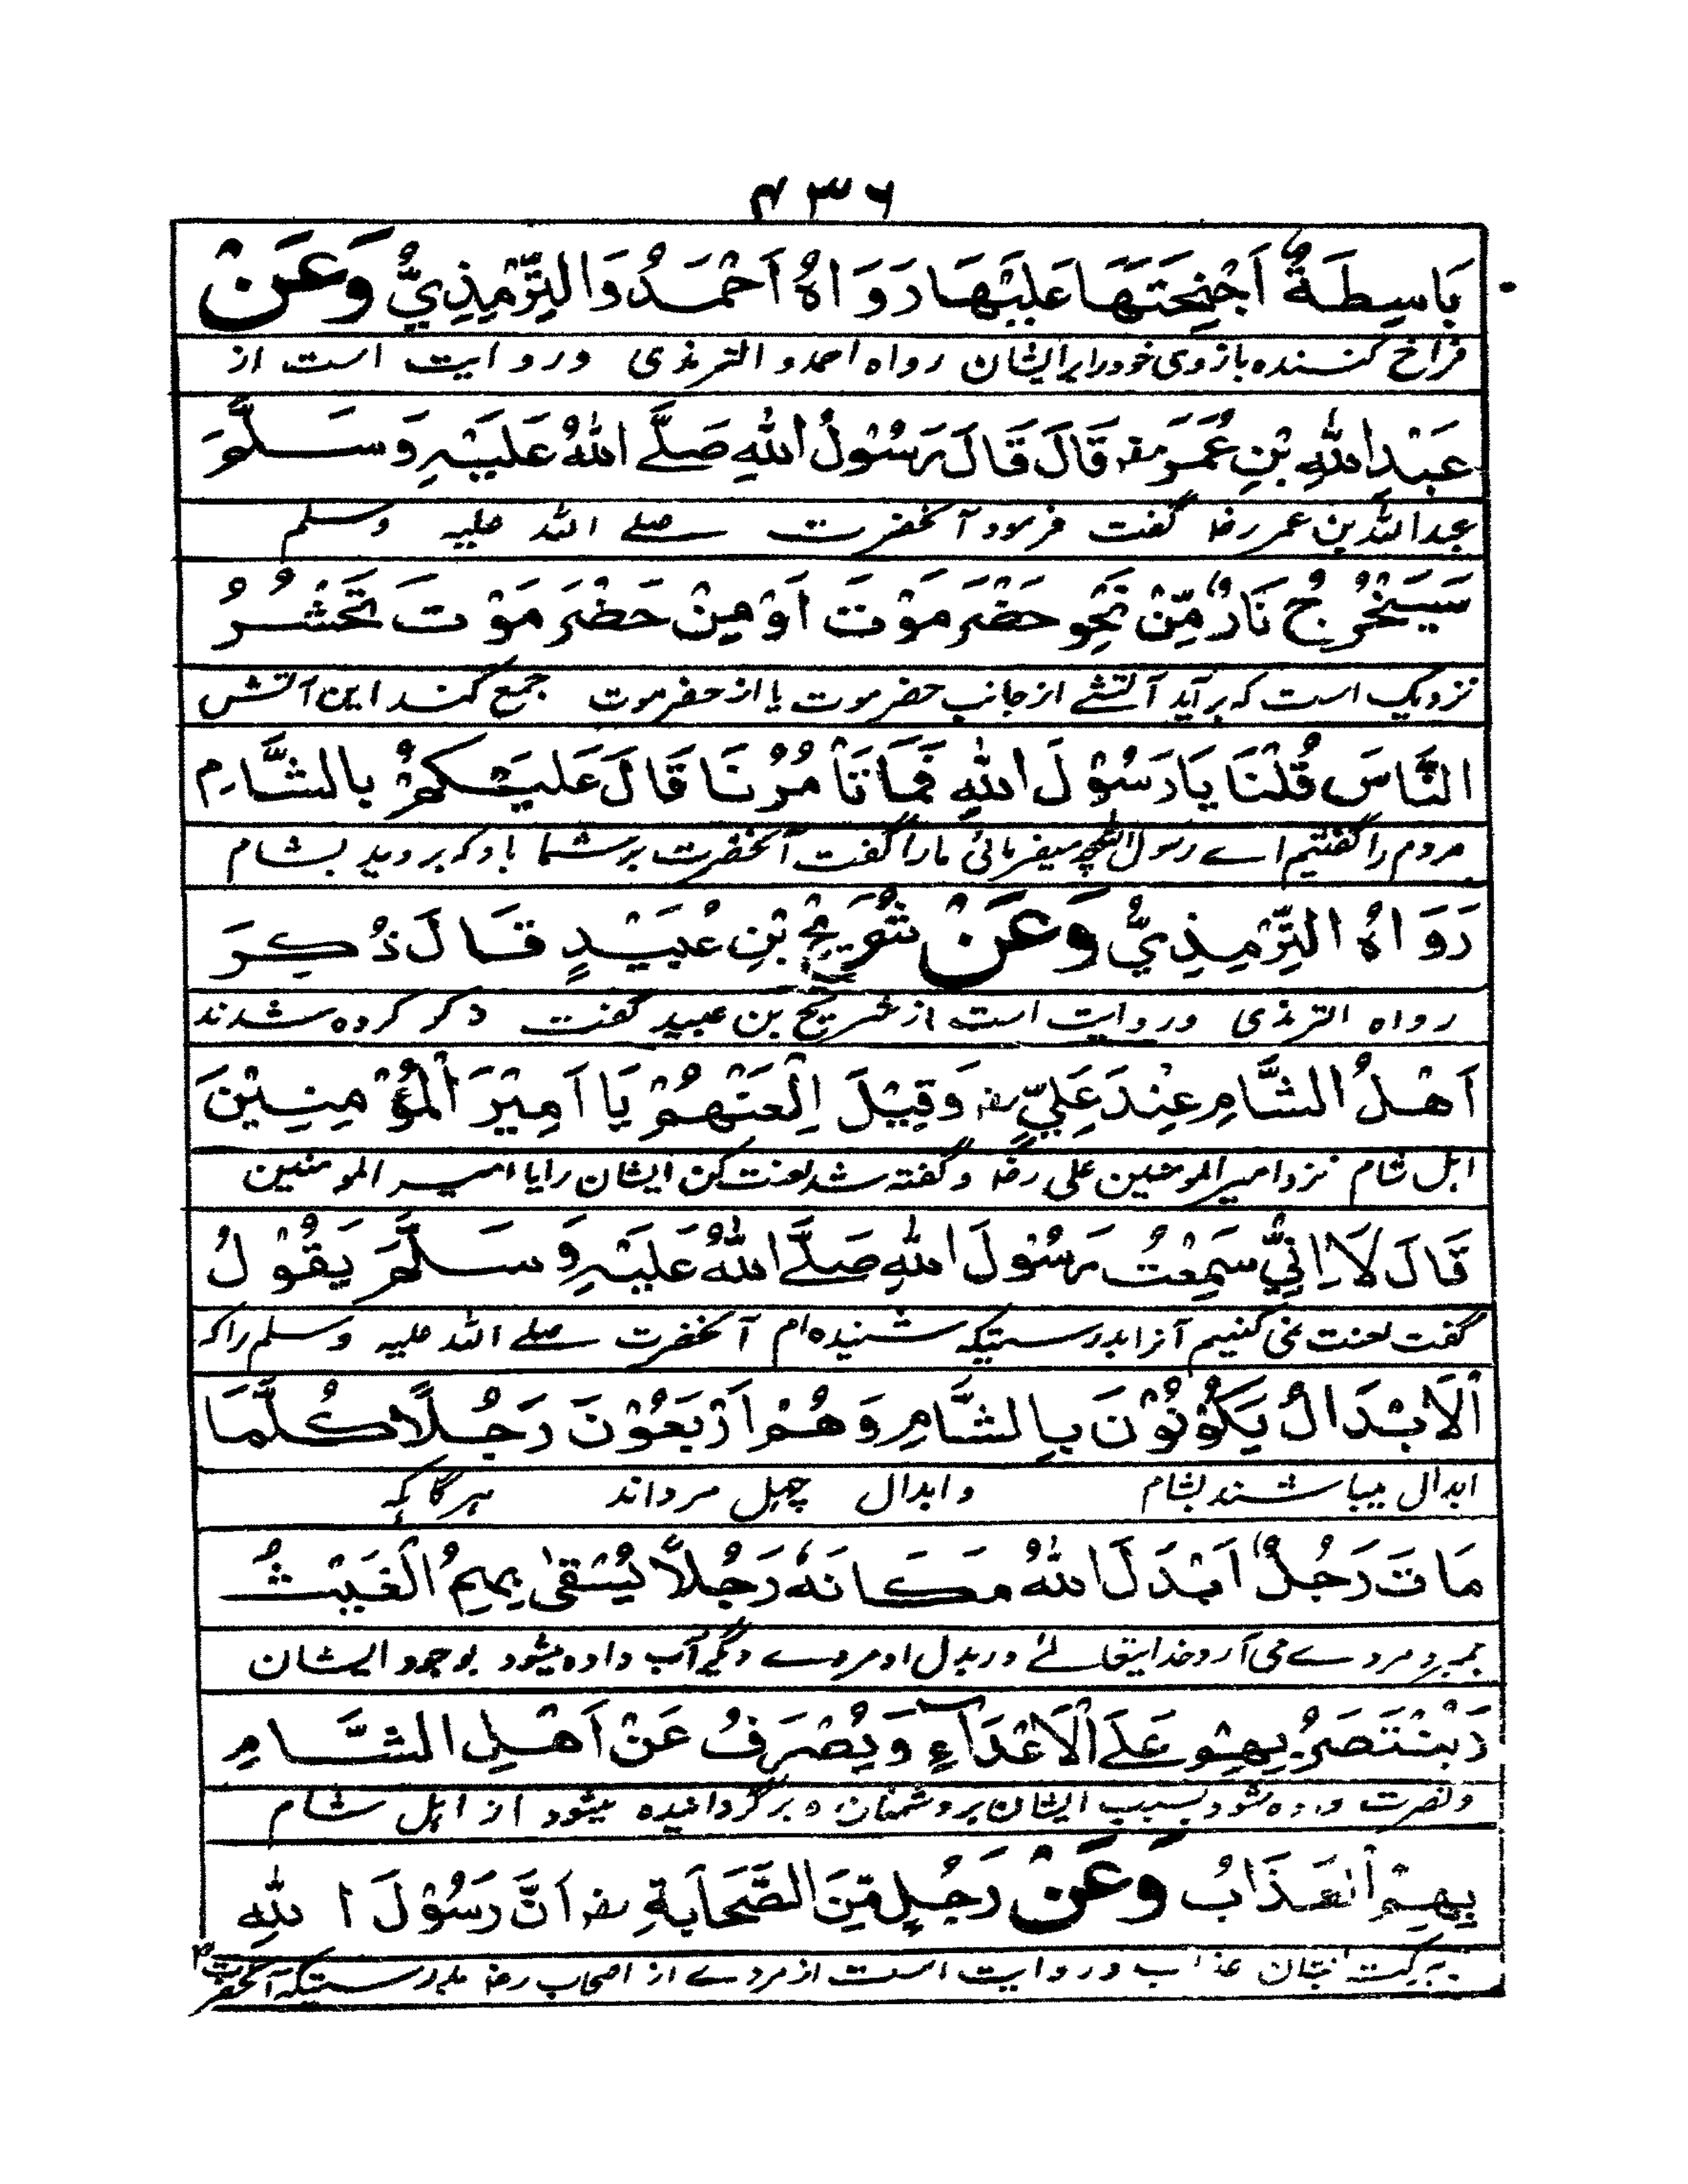 ۴۳۶
بَاسِطَةٌ اَجْنِحَتَهَا عَلَيْهَا رَوَاهُ اَحْمَدُ وَالتِّرْمِذِيُّ وَعَنْ
فراخ کننده بازوی خود را بر ایشان رواه احمد و الترمذی و روایت است از
عَبْدِ اللهِ بْنِ عُمَرَ رضہ قَالَ قَالَ رَسُوْلُ اللهِ صَلَّے اللهُ عَلَيْہِ وَسَلَّمَ
عبد الله بن عمر رضہ گفت فرمود آنحضرت صلے الله علیہ وسلم
سَيَخْرُجُ نَارٌ مِّنْ نَحْوِ حَضْرَمَوْتَ اَوْ مِنْ حَضْرَمَوْتَ تَحْشُرُ
نزدیک است کہ برآید آتشے از جانب حضرموت یا از حضرموت جمع کند این آتش
النَّاسَ قُلْنَا يَا رَسُوْلَ اللهِ فَمَا تَاْمُرُنَا قَالَ عَلَيْكُمْ بِالشَّامِ
مردم را گفتیم اے رسول اللہ چہ میفرمائی مارا گفت آنحضرت بر شما باد کہ بروید بشام
رَوَاهُ التِّرْمِذِيُّ وَعَنْ شُرَيْحِ بْنِ عُبَيْدٍ قَالَ ذُكِرَ
رواه الترمذی و روایت است از شریح بن عبید گفت ذکر کرده شدند
اَهْلُ الشَّامِ عِنْدَ عَلِيٍّ رضہ وَقِيْلَ اِلْعَنْهُمْ يَا اَمِيْرَ الْمُؤْمِنِيْنَ
اہل شام نزد امیر المومنین علی رضہ و گفتہ شد لعنت کن ایشان را یا امیر المومنین
قَالَ لَا اِنِّيْ سَمِعْتُ رَسُوْلَ اللهِ صَلَّے اللهُ عَلَيْہِ وَسَلَّمَ يَقُوْلُ
گفت لعنت نمی کنیم آنرا بدرستیکہ شنیده ام آنحضرت صلے اللہ علیہ وسلم را کہ
اَلْاَبْدَالُ يَكُوْنُوْنَ بِالشَّامِ وَهُمْ اَرْبَعُوْنَ رَجُلًا كُلَّمَا
ابدال میباشند بشام و ابدال چہل مرد اند ہرگاہکہ
مَاتَ رَجُلٌ اَبْدَلَ اللهُ مَكَانَهٗ رَجُلًا يُسْقٰى بِهِمُ الْغَيْثُ
بمیرد مردے می آرد خدایتعالے در بدل او مردے دگر آب داده میشود بوجود ایشان
وَيُنْتَصَرُ بِهِمْ عَلَے الْاَعْدَآءِ وَيُصْرَفُ عَنْ اَهْلِ الشَّامِ
و نصرت داده شود بسبب ایشان بر دشمنان و برگردانیده میشود از اہل شام
بِهِمُ الْعَذَابُ وَعَنْ رَجُلٍ مِّنَ الصَّحَابَةِ رضہ اَنَّ رَسُوْلَ اللهِ
ببرکت ایشان عذاب و روایت است از مردے از اصحاب رضہ بدرستیکہ آنحضرت